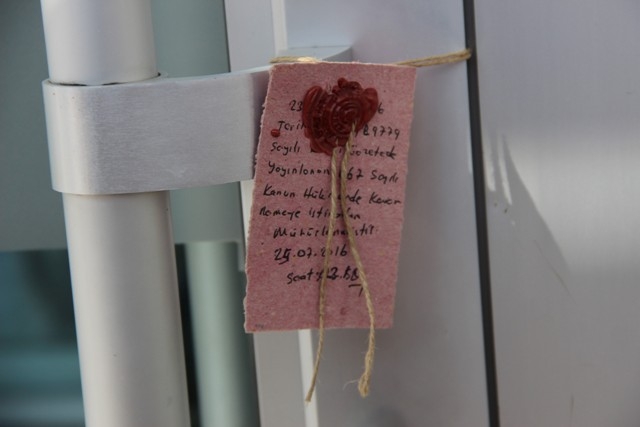 23 6
Tarih 29779
Sayılı Gazetede
Yayınlanan 667 Sayılı
Kanun Hükmünde Karar
nameye istinaden
Mühürlenmiştir.
25.07.2016
Saat: